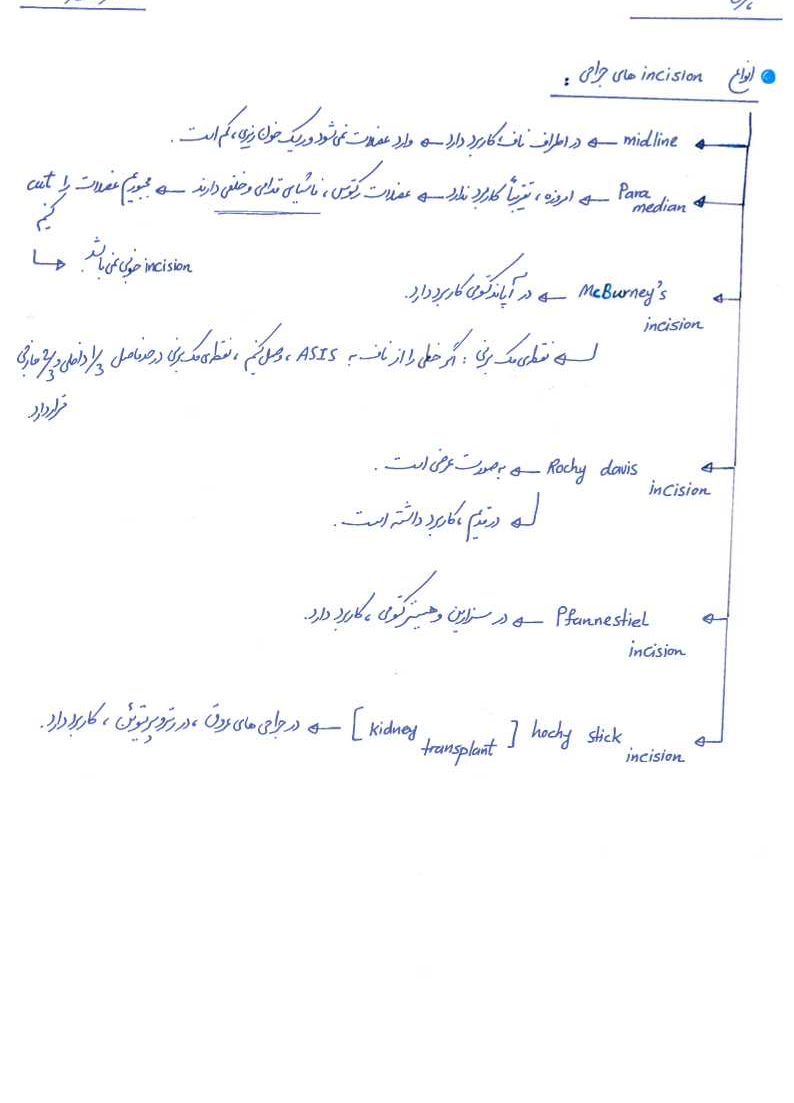 انواع incision های جراحی :
midline ← در اطراف ناف، کاربرد دارد ← وارد عضلات نمی‌شود و ریسک خون ریزی، کم است.
Para median ← امروزه، تقریباً کاربرد ندارد ← عضلات رکتوس، فاشیای قدامی و خلفی دارند ← مجبوریم عضلات را cut
کنیم
↳ incision خوبی نمی باشد.
McBurney's incision ← در آپاندکتومی کاربرد دارد.
↳ نقطه‌ی مک برنی : اگر خطی را از ناف به ASIS، وصل کنیم، نقطه‌ی مک برنی در حدفاصل 1/3 داخلی و 2/3 خارجی
قرار دارد
Rochy davis incision ← به صورت عرضی است.
↳ در قدیم، کاربرد داشته است.
Pfannestiel incision ← در سزارین و هیسترکتومی، کاربرد دارد.
hochy stick incision [kidney transplant] ← در جراحی های عروق، در رتروپریتوئن، کاربرد دارد.